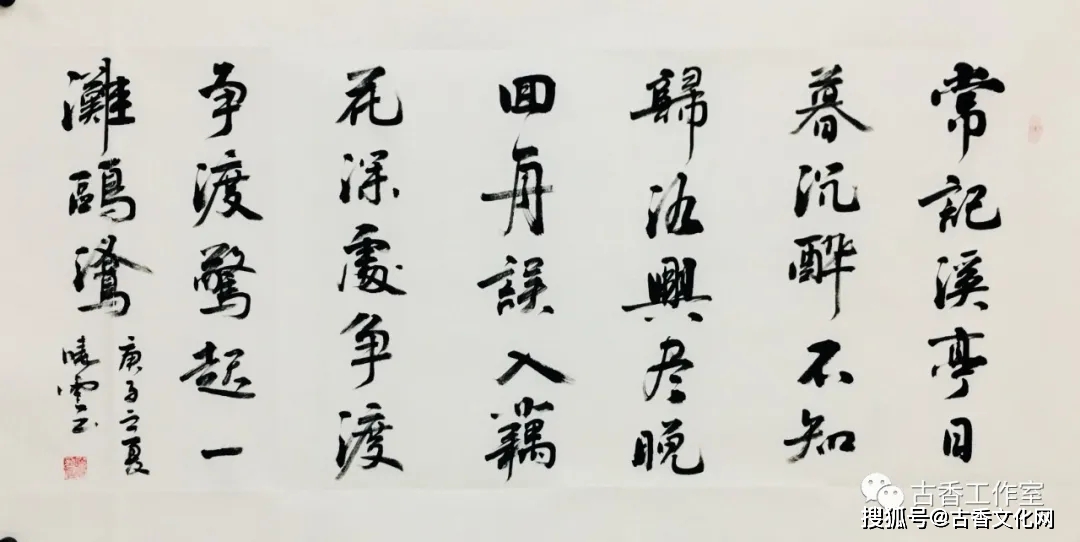 常記溪亭日
暮沉酔不知
歸路興尽晚
回舟誤入藕
花深處争渡
争渡驚起一
灘鷗鷺
庚子之夏
古香工作室
搜狐号@古香文化网